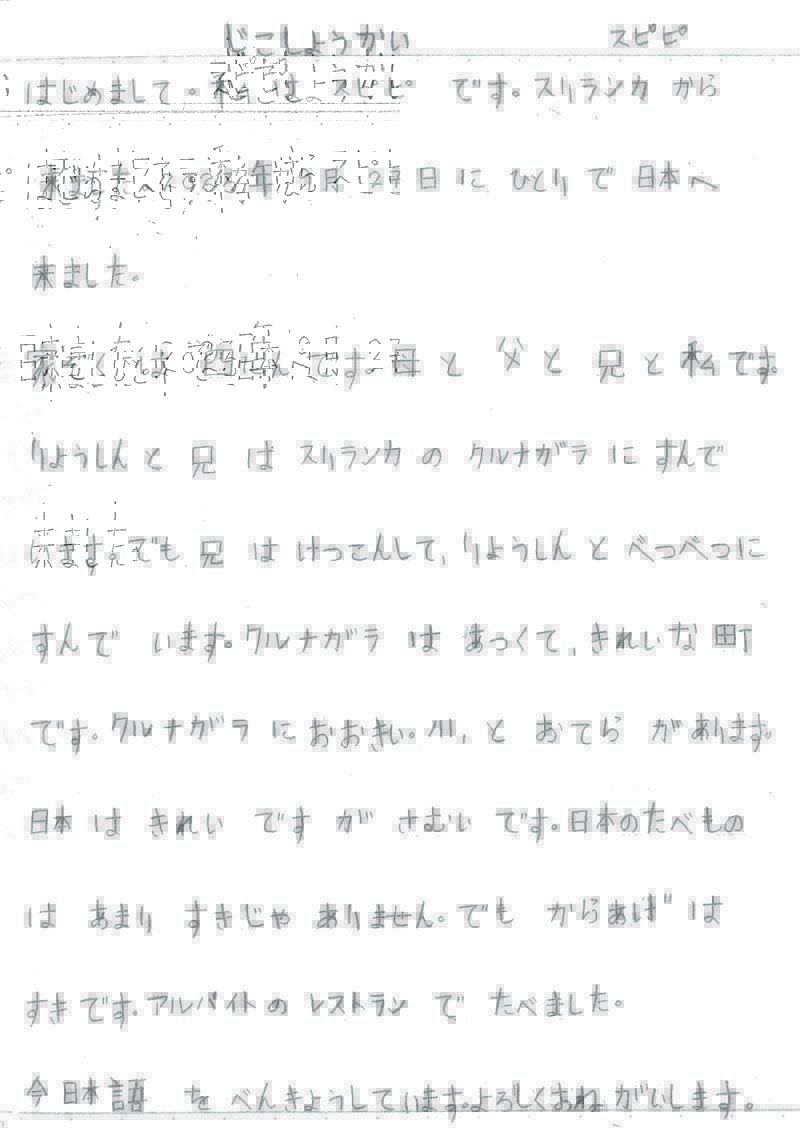 じこしょうかい スピピ
はじめまして。私はスピピ です。スリランカ から
年 9月 27日 に ひとり で 日本へ
来ました。
です。母 と 父 と 兄 と 私です。
りょうしん と 兄 は スリランカ の クルナガラ に すんで
います。でも 兄 は けっこんして、りょうしん と べつべつに
すんで います。クルナガラ は あつくて、きれいな 町
です。クルナガラ に おおきい。川、と おてら が あります。
日本 は きれい です が さむい です。日本のたべもの
は あまり すきじゃ ありません。でも からあげ は
すきです。アルバイトの レストラン で たべました。
今 日本語 を べんきょうしています。よろしくおねがいします。